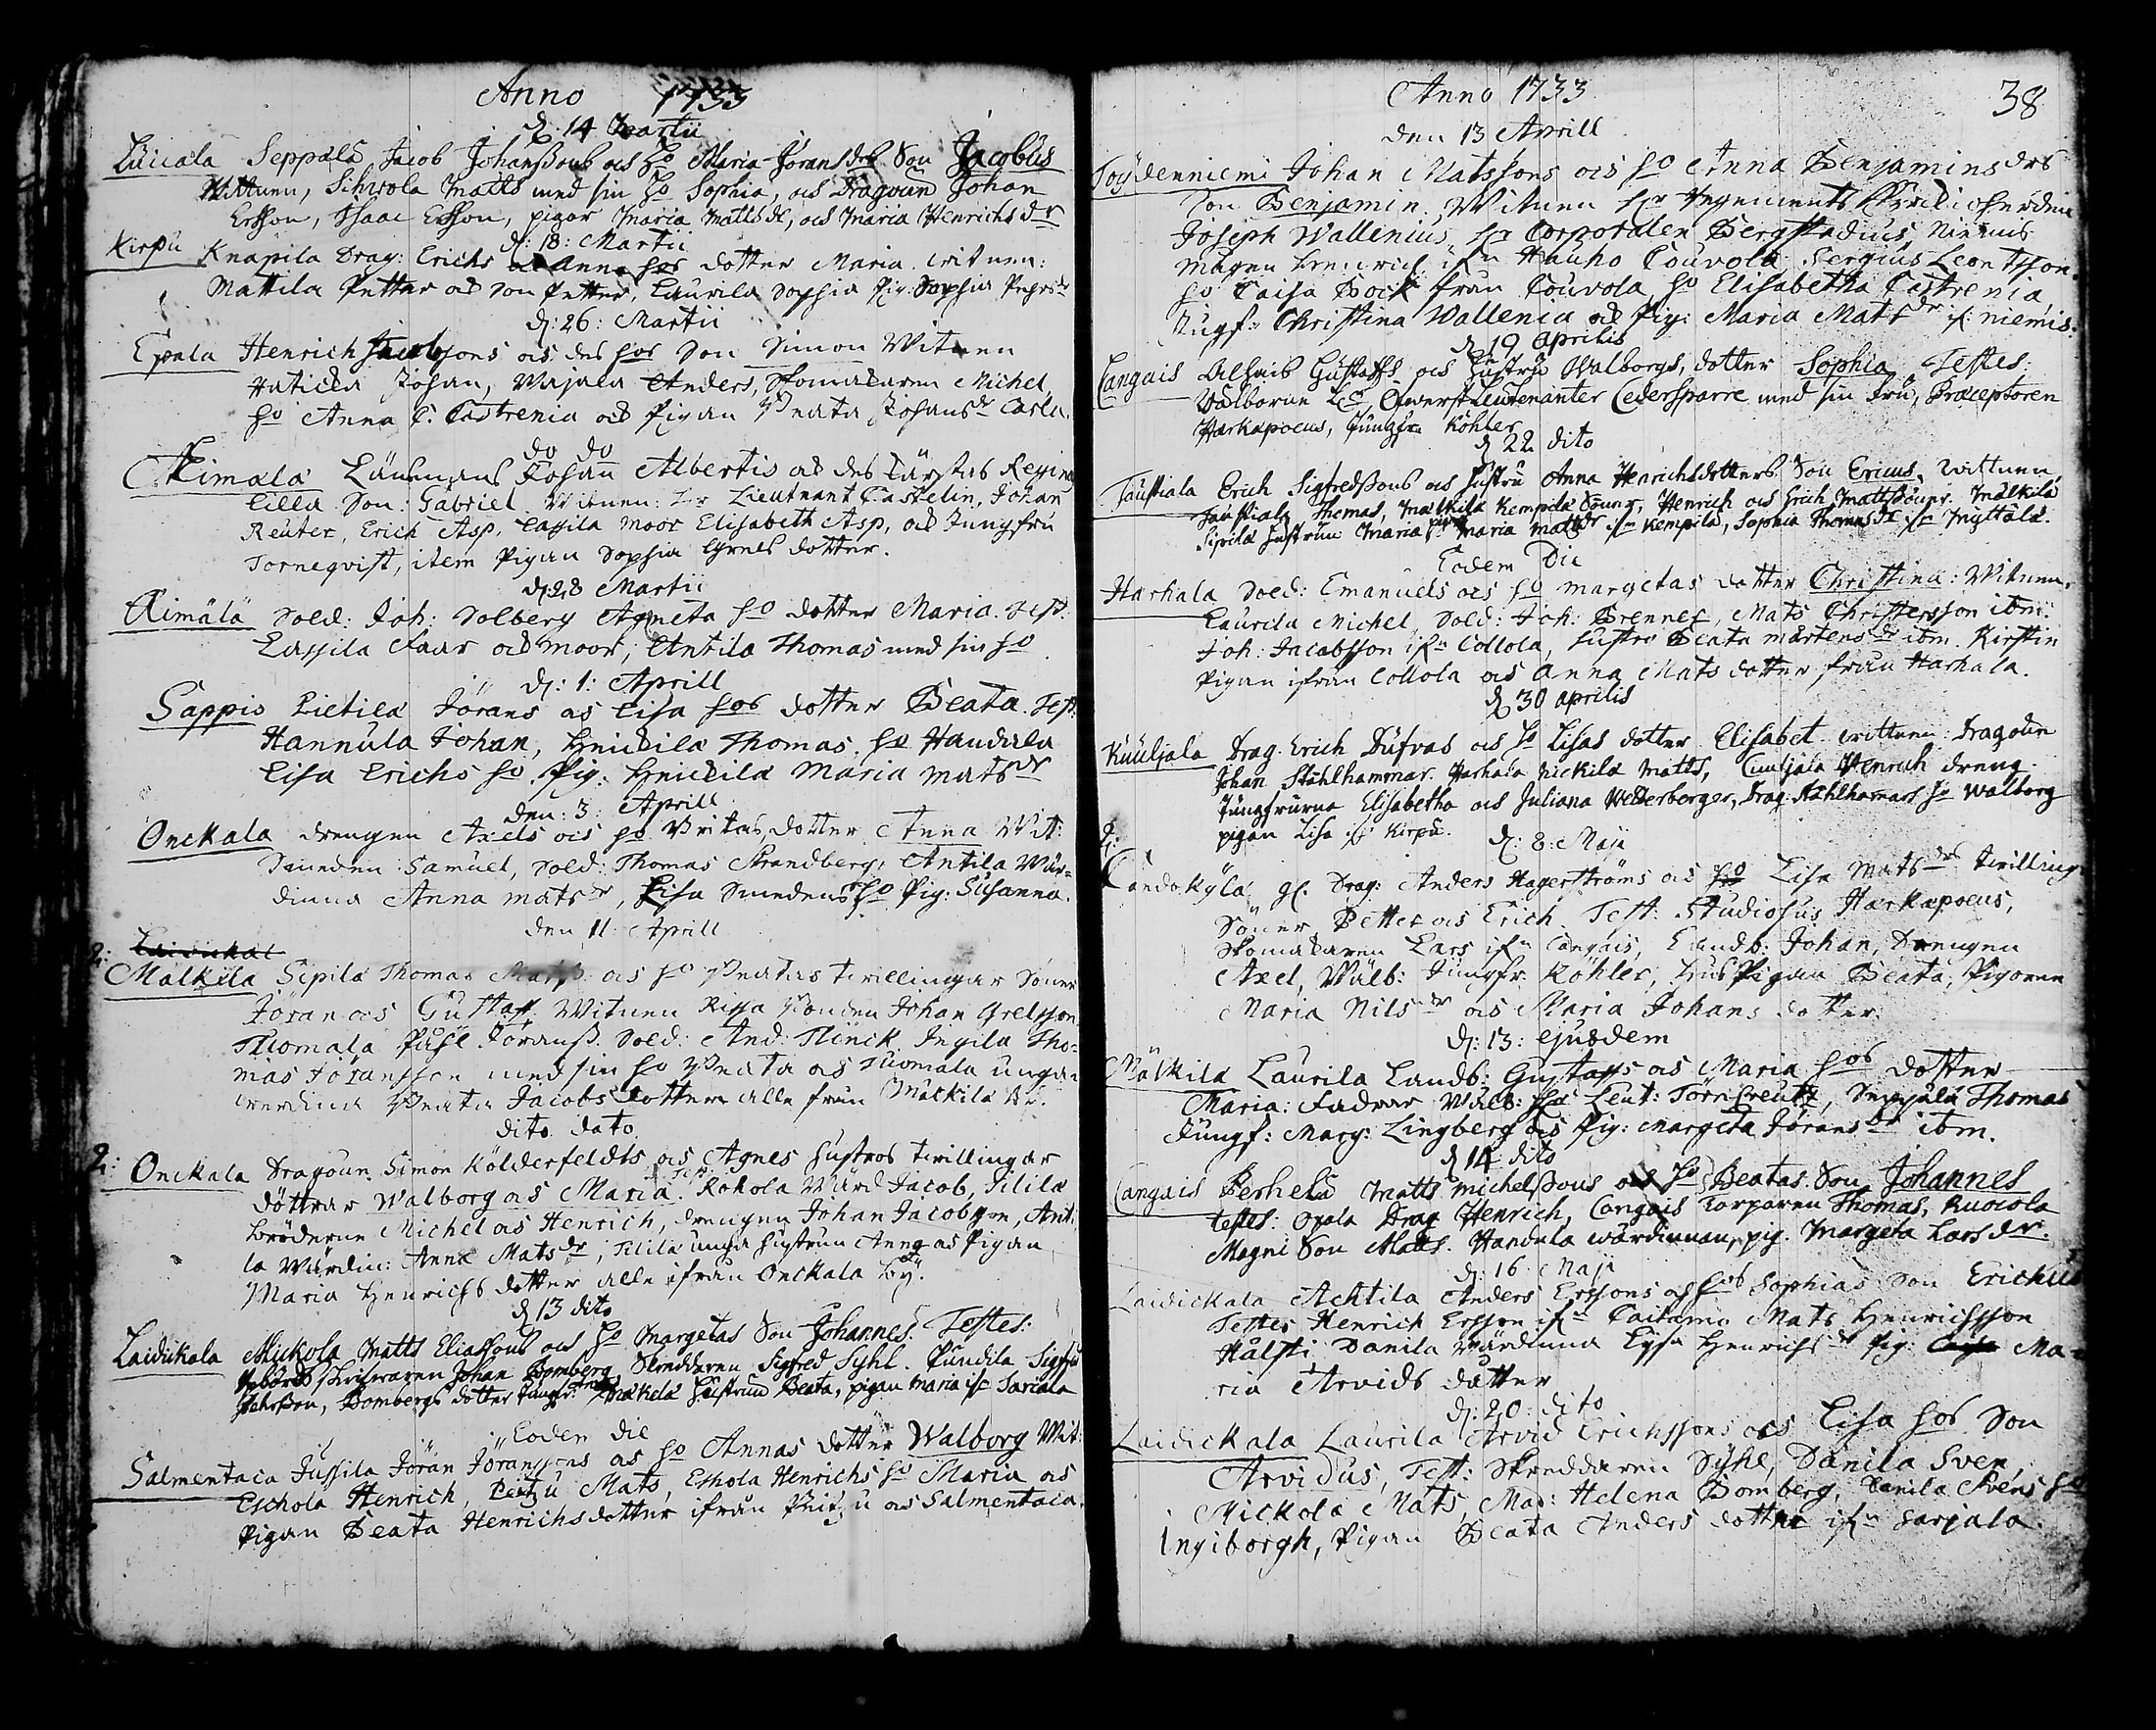 Anno 1733
d. 14 Martii
Lüicala Seppälä Jacob Johanssons och ho Maria Jöransdrs Son Jacobus
Wittnen, Sihwola Matts med sin ho Sophia, och Dragoun Johan
Ersson, Isaac Ersson, pigor Maria Matts dr, och Maria Henrichs dr
d: 18: Martii
Kirpu Knapila Drag: Erichs och Anna hos dotter Maria witnen:
Mattila Petter och son Petter, Laurila Sophia Pig. Sophia Pehrs dr
d: 26: Martii
Epala Henrich Jacobssons och des hos Son Simon Witnen
Johan, Anders, Skomakaren Michel
ho Anna C. Castrenia och Pigan Beata Johans dr
do do
Äimälä Länsmans Johan Albertis och des Kärstas Regina
Lilla Son: Gabriel. Witnen: Hr Lieutnant Castelin, Johan
Reuter, Erich Asp, Lassila Moor Elisabeth Asp, och Jungfru
Torneqvist, item Pigan Sophia dotter.
d: 28 Martii
Äimälä Sold: Joh: Solberg Agneta ho dotter Maria. Test.
Lassila Faar och Moor, Antila Thomas med sin ho
d: 1: Aprill
Sappio Pietilä Jörans och Lisa hos dotter Beata. Test.
Hannula Johan, Heickilä Thomas. ho
Lisa Erichs ho. Pig: Heickilä Maria Mats dr
den: 3: Aprill
Onckala drengen Axels och ho Britas dotter Anna Wit:
Smeden Samuel, Sold: Thomas Strandberg, Antila Wär-
dinna Anna Mats dr, Lisa Smedens ho Pig: Susanna.
den 11 Aprill
2: Laidickal
Mälkilä Sipilä Thomas Mats och ho Beatas twillingar Söner
Jöran och Gustaff. Witnen Bonden Johan Grelsson
Thomala Påhl Jöranss. Sold: And: Flinck. Ingila Tho-
mas Jöransson med sin ho Beata och Thomala unga
werdina Beata Jacobs dotter alla från Mälkilä By.
dito dato
2: Onckala Dragoun Simon Kölderfeldts och Agnes hustros twillingar
döttrar Walborg och Maria. Test: Rokola Wärd Jacob, Jilila
bröderne Michel och Henrich, drengen Johan Jacobsson, Anti-
la Wärdin: Anna Mats dr, Jilila unga hustrun Anna och Pigan
Maria Henrichs dotter alle ifrån Onckala by.
d 13 dito
Laidickala Mickola Matts Eliassons och ho Margetas Son Johannes. Testes:
skrifwaren Johan Bomberg Skreddaren Sigfred Syhl. Pundila Sigfred
Bombergs dotter Jungf: Anna Mäkelä hustrun Beata, pigan Maria ifr Sariala
Eodem die
Salmentaca Jussila Jöran Jöranssons och ho Annas dotter Walborg Wit:
Eschola Henrich, Peitzu Mats, Eshola Henrichs ho Maria och
Pigan Beata Henrichsdotter ifrån Peitzu och Salmentaca.
Anno 1733
38
den 13 Aprill
Töydenniemi Johan Matssons och ho Anna Benjamins drs
Son Benjamin. Witnen Hr Regements
Joseph Wallenius, Hr Corporalen Bergstadius,
ifrn Hauho Couvola Sergius Leontsson.
ho Caisa Bock från Couvola ho Elisabetha Castrenia,
Jungf: Christina Wallenia och Pig: Maria Mats dr if: niemis.
d 19 Aprilis
Cangais Gustaffs och Hustru Walborgs, dotter Sophia Testes:
Wälborne Hr Öfwerst Lieutenanter Cedersparre med sin Fru, Præceptoren
Harkapoeus, Jungfru Köhler
d 22 dito
Taustiala Erich Sigfredssons och Hustru Anna Henrichsdotters Son Ericus. Wittnen
Taustiala Thomas, Mälkilä Kempilä Söner, Henrich och Erich Mattssöner. Mälkilä
Sipilä Hustrun Maria pigan Maria Matts dr ifrn Kempilä, Sophia Thomas dr ifrn Myttälä.
Eodem Die
Harhala Sold: Emanuels och ho Margetas dotter Christina: Witnen.
Laurila Michel, Sold: Joh: Brenner, Mats Christersson ibm:
Joh: Jacobsson ifrn Collola, hustro Beata Mårtens dr ibm. Kirstin
Pigan ifrån Collola och Anna Mats dotter från Harhala.
d 30 Aprilis
Kuuljala Drag. Erich Dufvas och ho Lisas dotter Elisabet wittnen: Dragoun
Johan Stålhammar. Harhala Mickila Matts, Cuuljala Henrich dreng
Jungfrurna Elisabetha och Juliana Wetterberger, Drag. Stålhamars ho Walborg
pigan Lisa ifr Kirpu.
d: 8: Maji
2:
Candokylä gl. Drag: Anders Hagerströms och ho Lisa Mats drs twilling
Söner Petter och Erich. Test: Studiosus Harkapoeus,
Skomakaren Lars ifrn Cangais, Landb: Johan, Drengen
Axel, Wälb: Jungfr: Köhler, Hus Pigan Beata, Pigorne
Maria Nils dr och Maria Johans dotter.
d: 13: ejusdem
Mälkilä Laurila Landb: Gustaffs och Maria hos dotter
Maria: Fadrar Wälb: Hr Leut: Törn Creutz, Seppälä Thomas
Jungf: Marg: Lingberg och Pig: Margeta Jörans dr ibm.
d 14 dito
Cangais Perhelä Matts Michelssons och ho Beatas Son Johannes
testes: Opala Drag Henrich, Cangais torparen Thomas, Ruocola
Magni Son Matts. Handula wärdinnan, pig. Margeta Lars dr.
d: 16 Maji
Laidickala Achtila Anders Erssons och hos Sophias Son Erichus
Testes Henrich Ersson ifrn Mats Henrichsson
Hålsti Danila Wärdinna Lysa Henrichs dr Pig: Ma-
ria Arvids dotter
d: 20: dito
Laidickala Laurila Arvid Erichssons och Lisa hos Son
Arvidus, Test: Skreddaren Syhl, Danila Sven,
Mickola Mats, Mad: Helena Bomberg, Danila Svens ho
Ingiborgh, Pigan Beata Anders dotter ifrn Sarjala.